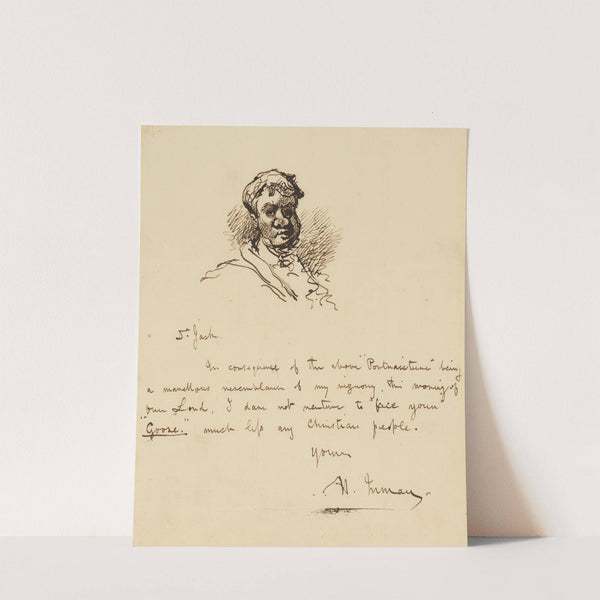 Dr Jack.
In consequence of the above "Portraicture" being
a marvellous resemblance of my signory, this morning of
our Lord, I dare not venture to "face your
Goose." much less any Christian people.
Yours
H. Inman.